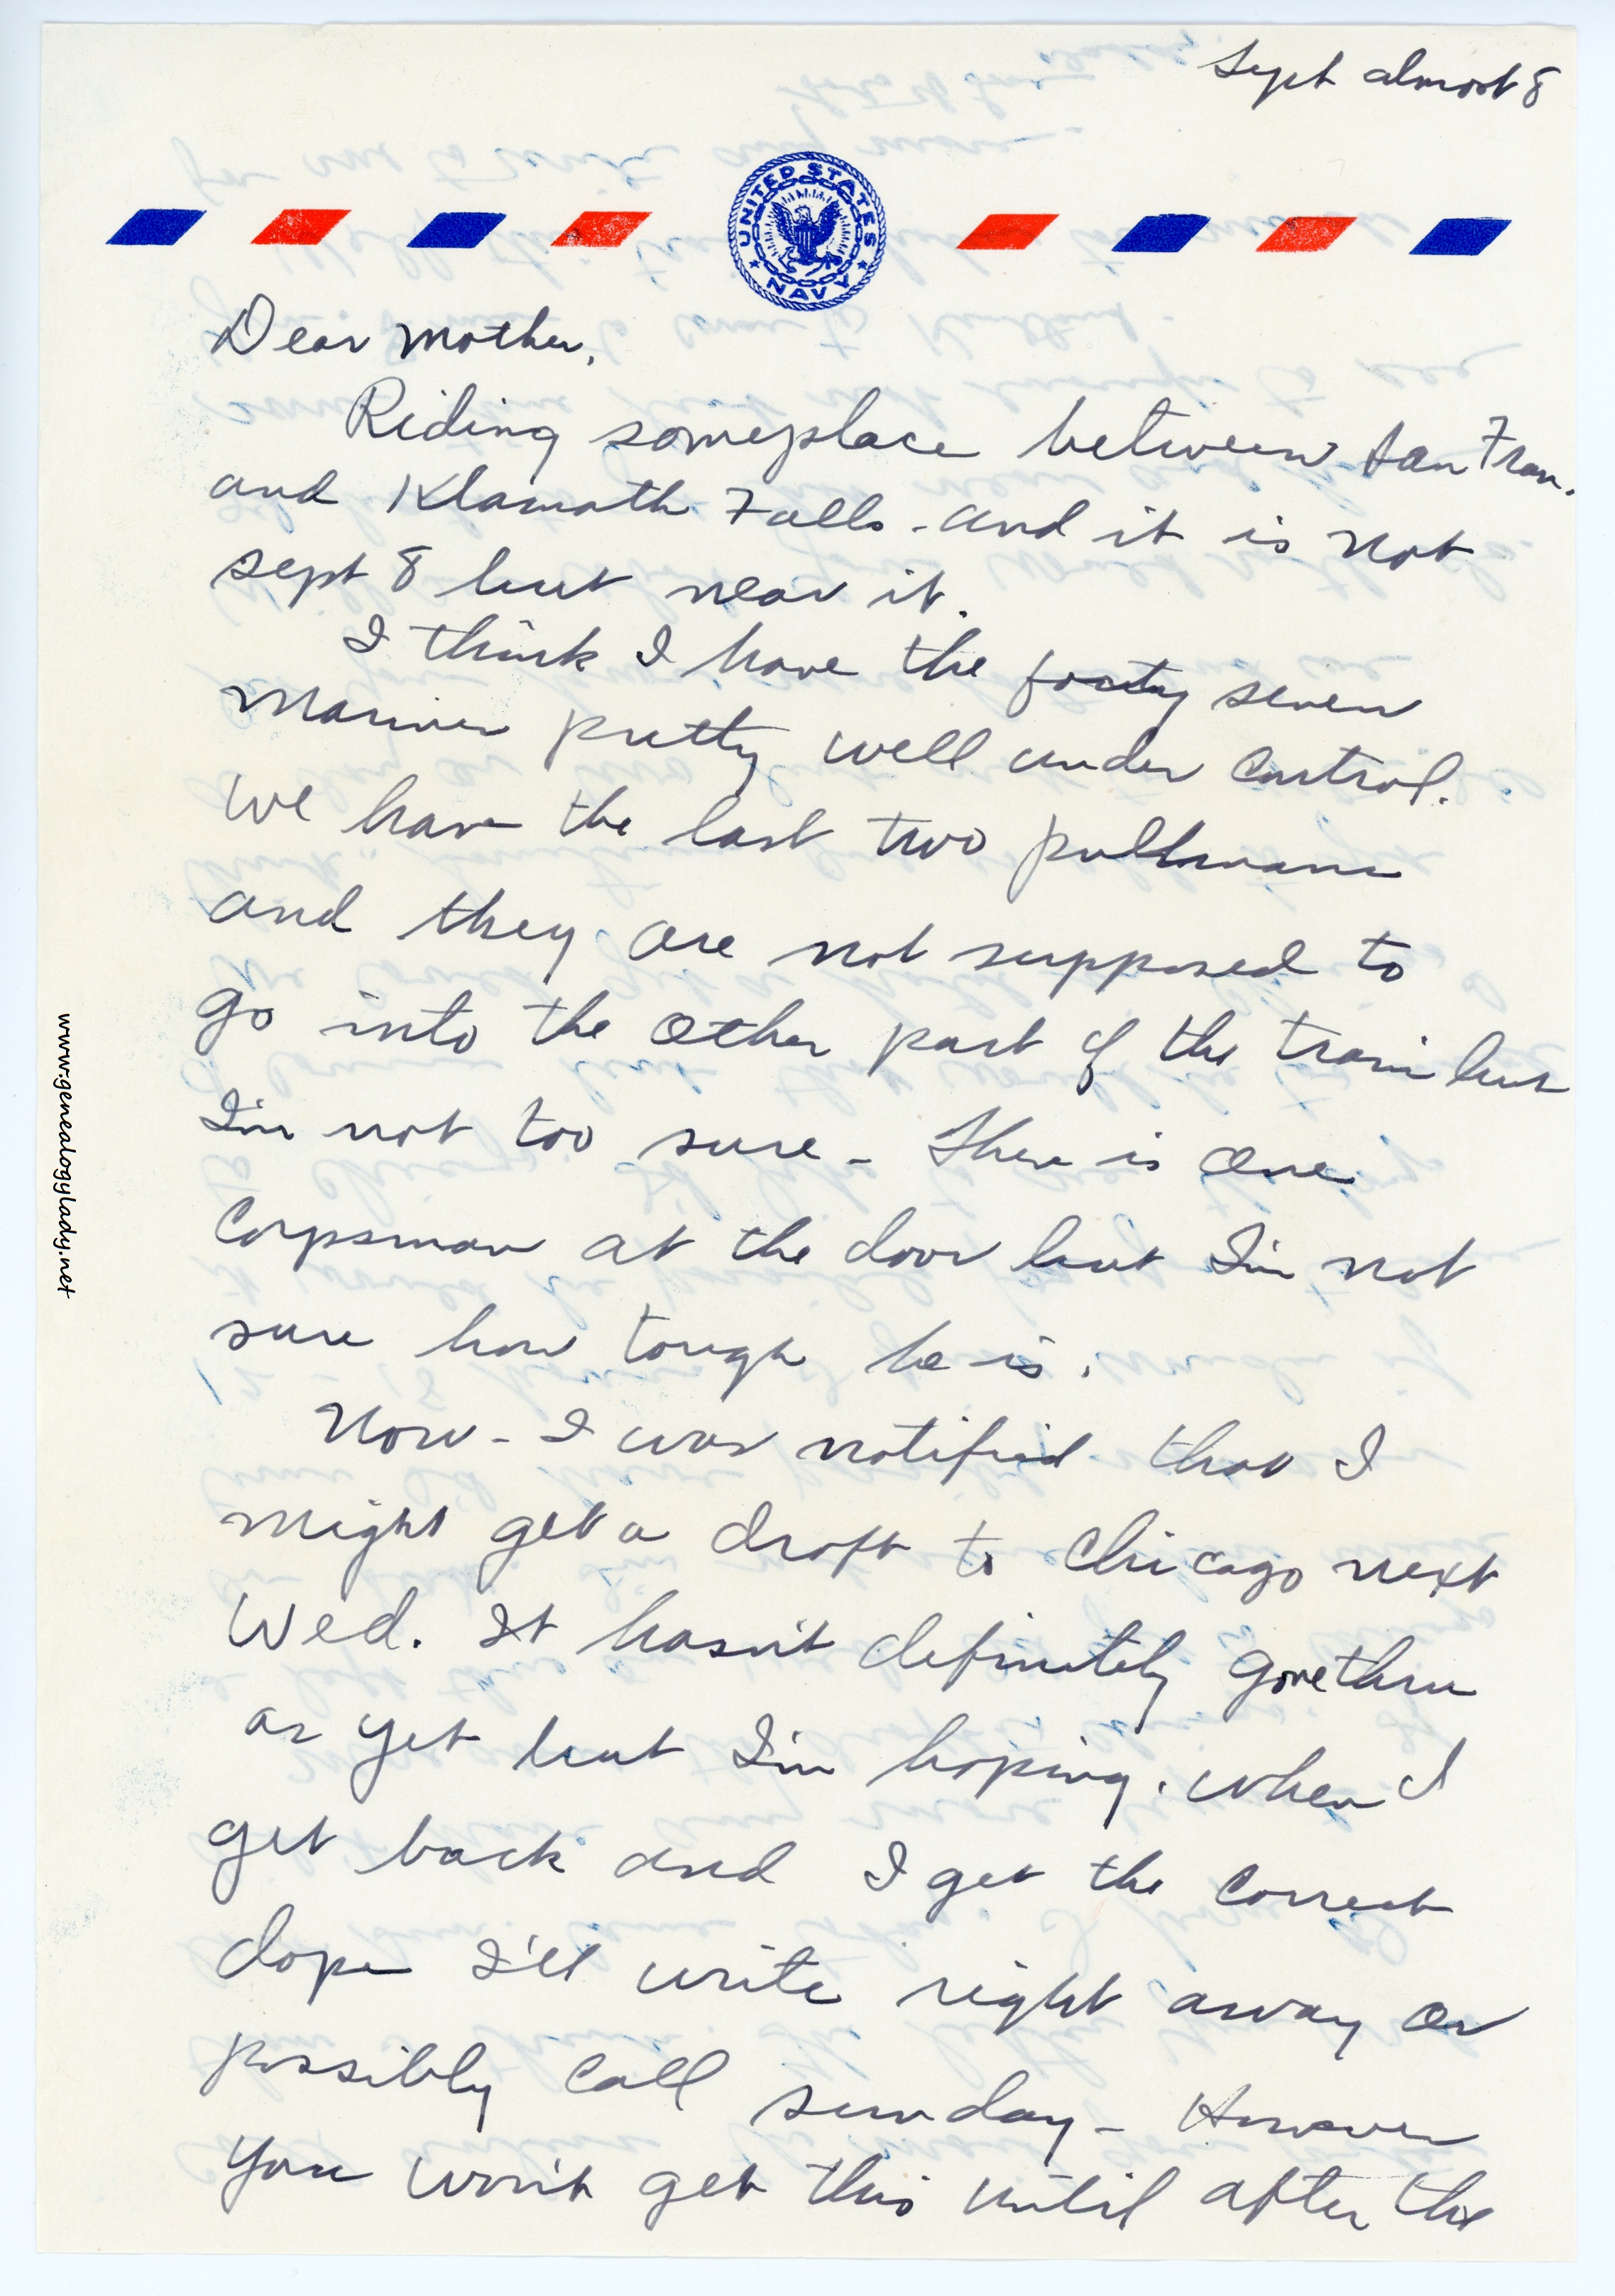 Sept almost 8
UNITED STATES NAVY
Dear Mother,
Riding someplace between San Fran.
and Klamath Falls - and it is not
Sept 8 but near it.
I think I have the forty seven
Marines pretty well under control.
We have the last two pullmans
and they are not supposed to
go into the other part of the train but
I'm not too sure - There is one
Corpsman at the door but I'm not
sure how tough he is.
Now - I was notified that I
might get a draft to Chicago next
Wed. It hasn't definitely gone thru
as yet but I'm hoping. When I
get back and I get the correct
dope I'll write right away or
possibly call Sunday - However
you won't get this until after the
www.genealogylady.net